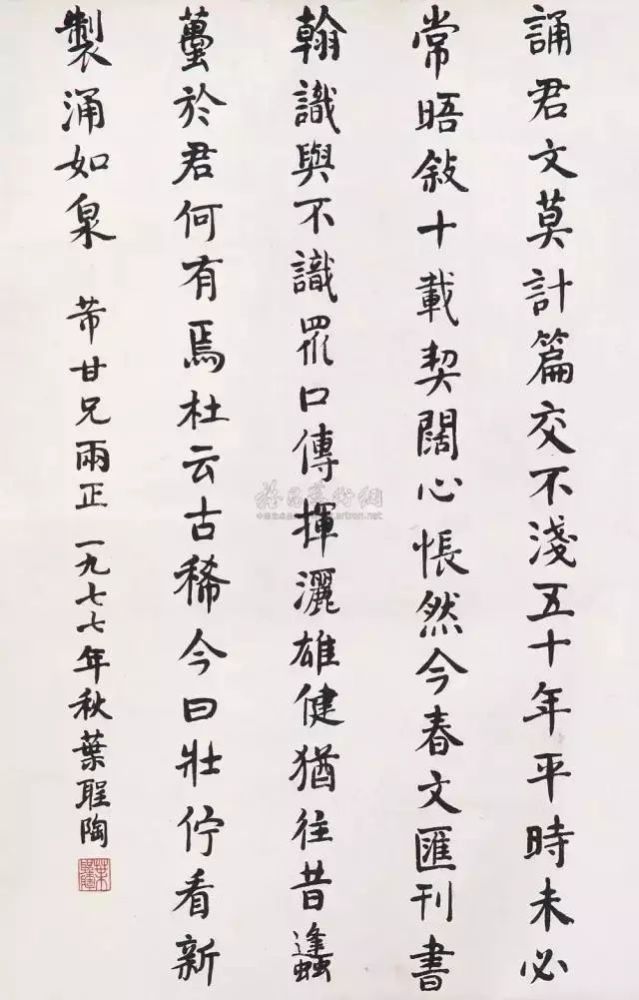 誦君文莫計篇交不淺五十年平時未必
常晤敍十載契闊心悵然今春文匯刊書
翰識與不識眾口傳揮灑雄健猶往昔蠭
蠆於君何有焉杜云古稀今曰壯佇看新
製涌如泉 芾甘兄兩正 一九七七年秋葉聖陶